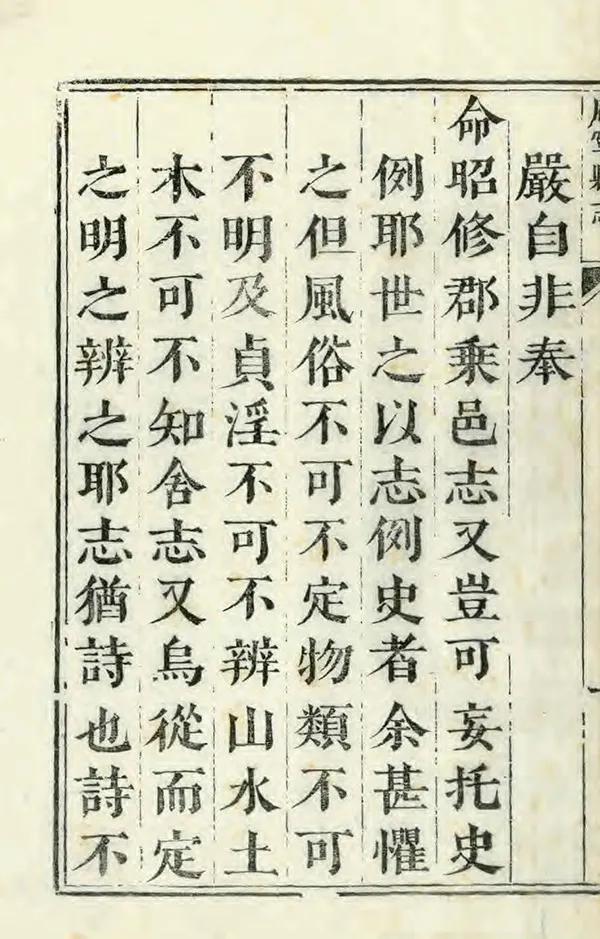 縣志
嚴自非奉
命昭修郡乘邑志又豈可妄托史
例耶世之以志例史者余甚懼
之但風俗不可不定物類不可
不明及貞淫不可不辨山水土
木不可不知舍志又烏從而定
之明之辨之耶志猶詩也詩不